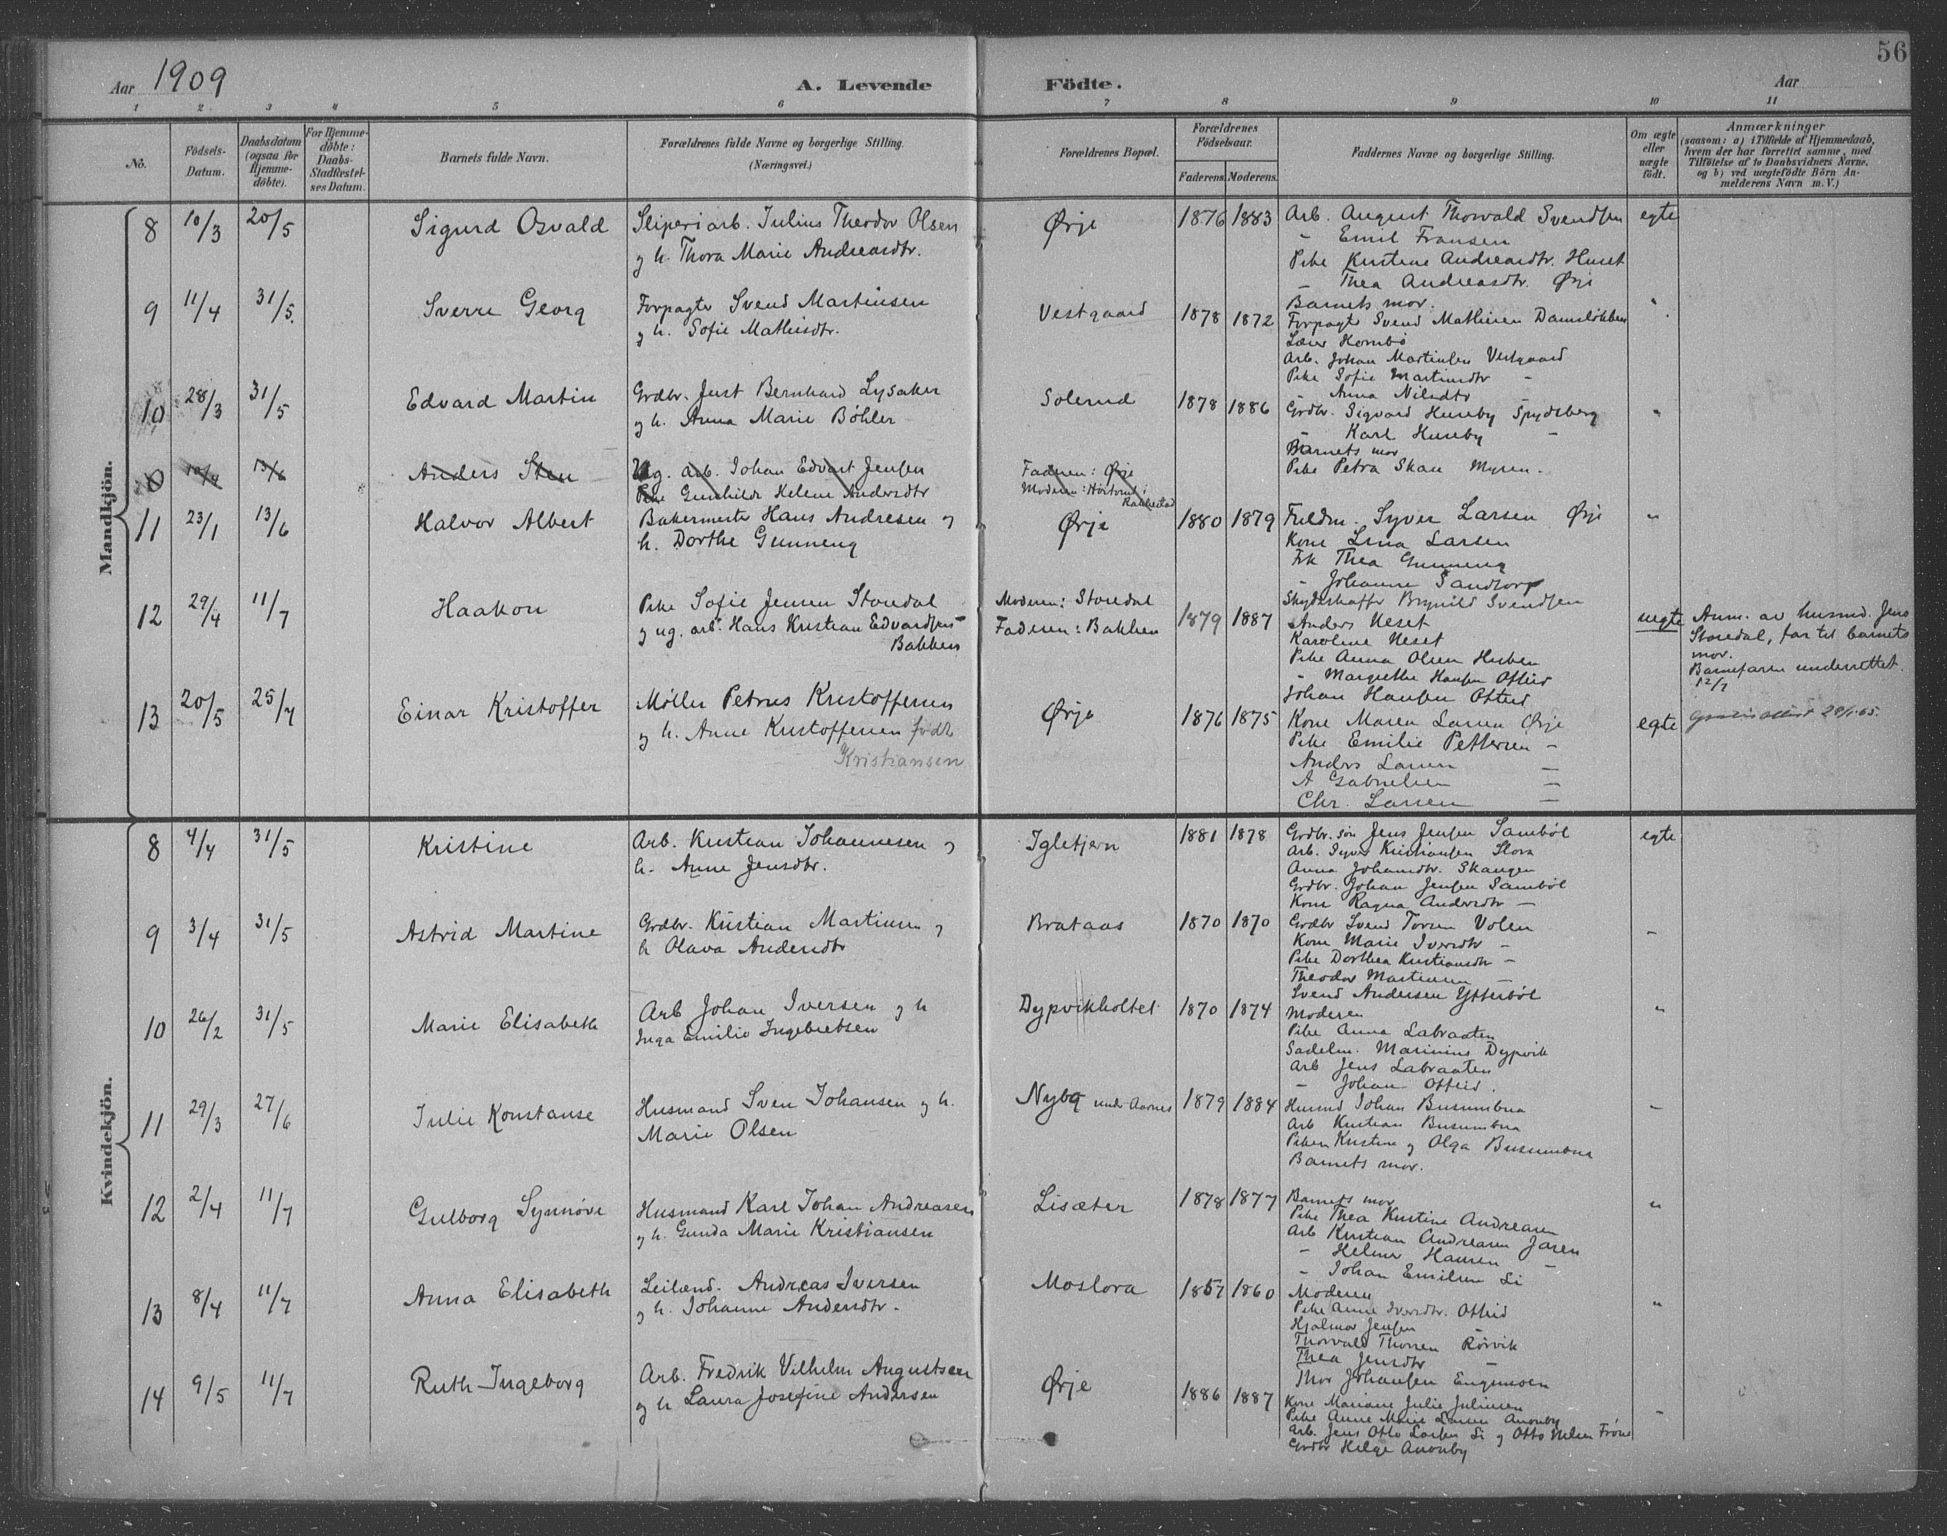 56
Aar 1909 A. Levende Födte. Aar
1 2 3 4 5 6 7 8 9 10 11
No. Födsels-Datum. Daabsdatum (ogsaa for Hjemmedöbte). For Hjemmedöbte: Daabs-Stadfæstelses Datum. Barnets fulde Navn. Forældrenes fulde Navne og borgerlige Stilling. (Næringsvei.) Forældrenes Bopæl. Forældrenes Födselsaar. Faderens. Moderens. Faddernes Navne og borgerlige Stilling. Om ægte eller uægte födt. Anmærkninger (saasom: a) i Tilfælde af Hjemmedaab, hvem der har forrettet samme, med Tilföielse af to Daabsvidners Navne, og b) ved uægtefödte Börn Anmelderens Navn m. V.)
Mandkjön.
8 10/3 20/5 Sigurd Osvald Sliperiarb. Julius Theodor Olsen
og h. Thora Marie Andreasdtr. Ørje 1876 1883 Arb. August Thorvald Svendsen
" Emil Fransen
Pike Kristine Andreasdtr. Huset
" Thea Andreasdtr. Ørje egte
9 11/4 31/5. Sverre Georg Forpagter Svend Martinsen
og h. Sofie Mathisdtr. Vestgaard 1878 1872 Barnets mor.
Forpagter Svend Mathisen
Lærer Hornbø
Arb. Johan Martinsen Vestgaard
Pike Sofie Martinsdtr "
" Anna Nilsdtr " "
10 28/3 31/5 Edvard Martin Grdbr. Just Bernhard Lysaker
og h. Anna Marie Bøhler Solerud 1878 1886 Grdbr. Sigvard Huseby Spydeberg
" Karl Huseby "
Barnets mor
Pike Petra Skau Myren. "
10/4 13/6 Anders Sten Ug. arb. Johan Edvart Jensen
Pike Gunhilde Helene Andersdtr Faderen: Ørje
Moderen: i Rakkestad
11 23/1 13/6 Halvor Albert Bakermester Hans Andresen og
h. Dorthe Gunneng Ørje 1880 1879 Fuldm. Syver Larsen Ørje
Kone Lina Larsen
Frk Thea Gunneng
" Johanne Sandtorp "
12 29/4 11/7 Haakon Pike Sofie Jensen Storedal
og ug. arb. Hans Kristian Edvardsen
Bakken Moderen: Storedal
Faderen: Bakken 1879 1887 Skydsskaffer Brynild Svendsen
Anders Neset
Karoline Neset
Pike Anna Olsen
" Margrethe Hansen Otteid
Johan Hansen Otteid uegte Anm. av husmd. Jens
Storedal, far til barnets
mor.
Barnefaren underrettet
12/7
13 20/5 25/7 Einar Kristoffer Møller Petrus Kristoffersen
og h. Anne Kristoffersen født
Kristiansen Ørje 1876 1875 Kone Maren Larsen Ørje
Pike Emilie Pettersen "
Anders Larsen "
A Gabrielsen "
Chr. Larsen " egte
Kvindekjön.
8 4/4 31/5 Kristine Arb. Kristian Johannesen og
h. Anne Jensdtr. Igletjern 1881 1878 Grdbr. søn Jens Jensen Sambøl
Arb. Syver Kristiansen Slora
Anna Johansdtr. Skaugen
Grdbr. Johan Jensen Sambøl
Kone Ragna Andersdtr " egte
9 3/4 31/5 Astrid Martine Grdbr. Kristian Martinsen og
h Olava Andersdtr Brataas 1870 1870 Grdbr Svend Torsen Volen
Kone Marie Iversdtr "
Pike Dorthea Kristiansdtr "
Theodor Martinsen "
Svend Andersen Ytterbøl "
10 26/2 31/5 Marie Elisabeth Arb Johan Iversen og h
Inga Emilie Ingebretsen Dypvikholtet 1870 1874 Moderen
Pike Anna Labraaten
Sadelm. Marinius Dypvik
Arb Jens Labraaten
" Johan Otteid. "
11 29/3 27/6 Julie Konstanse Husmand Sven Johansen og h.
Marie Olsen Nybg under Aarnes 1879 1884 Husmd Johan Busumbua
Arb Kristian Busumbua
Piken Kristine og Olga Busumbua
Barnets mor. "
12 2/4 11/7 Gulborg Synnøve Husmand Karl Johan Andreasen
og h. Gunda Marie Kristiansen Lisæter 1878 1877 Barnets mor
Pike Thea Kristine Andreasen
Arb Kristian Andreasen Jaren
" Helmer Hansen "
" Johan Emilsen Li "
13 8/4 11/7 Anna Elisabeth Leilænd. Andreas Iversen
og h. Johanne Andersdtr. Moslora 1857 1860 Moderen
Pike Anne Iversdtr. Otteid
Hjalmar Jensen "
Thorvald Thorsen Rørvik
Thea Jensdtr "
Thor Johansen Engemoen "
14 9/5 11/7 Ruth Ingeborg Arb. Fredrik Vilhelm Augustsen
og h Laura Josefine Andersen Ørje 1886 1887 Kone Mariane Julie Juliusen
Pike Anne Marie Larsen Anonby
Arb. Jens Otto Larsen Li og Otto
Grdbr Helge Anonby "